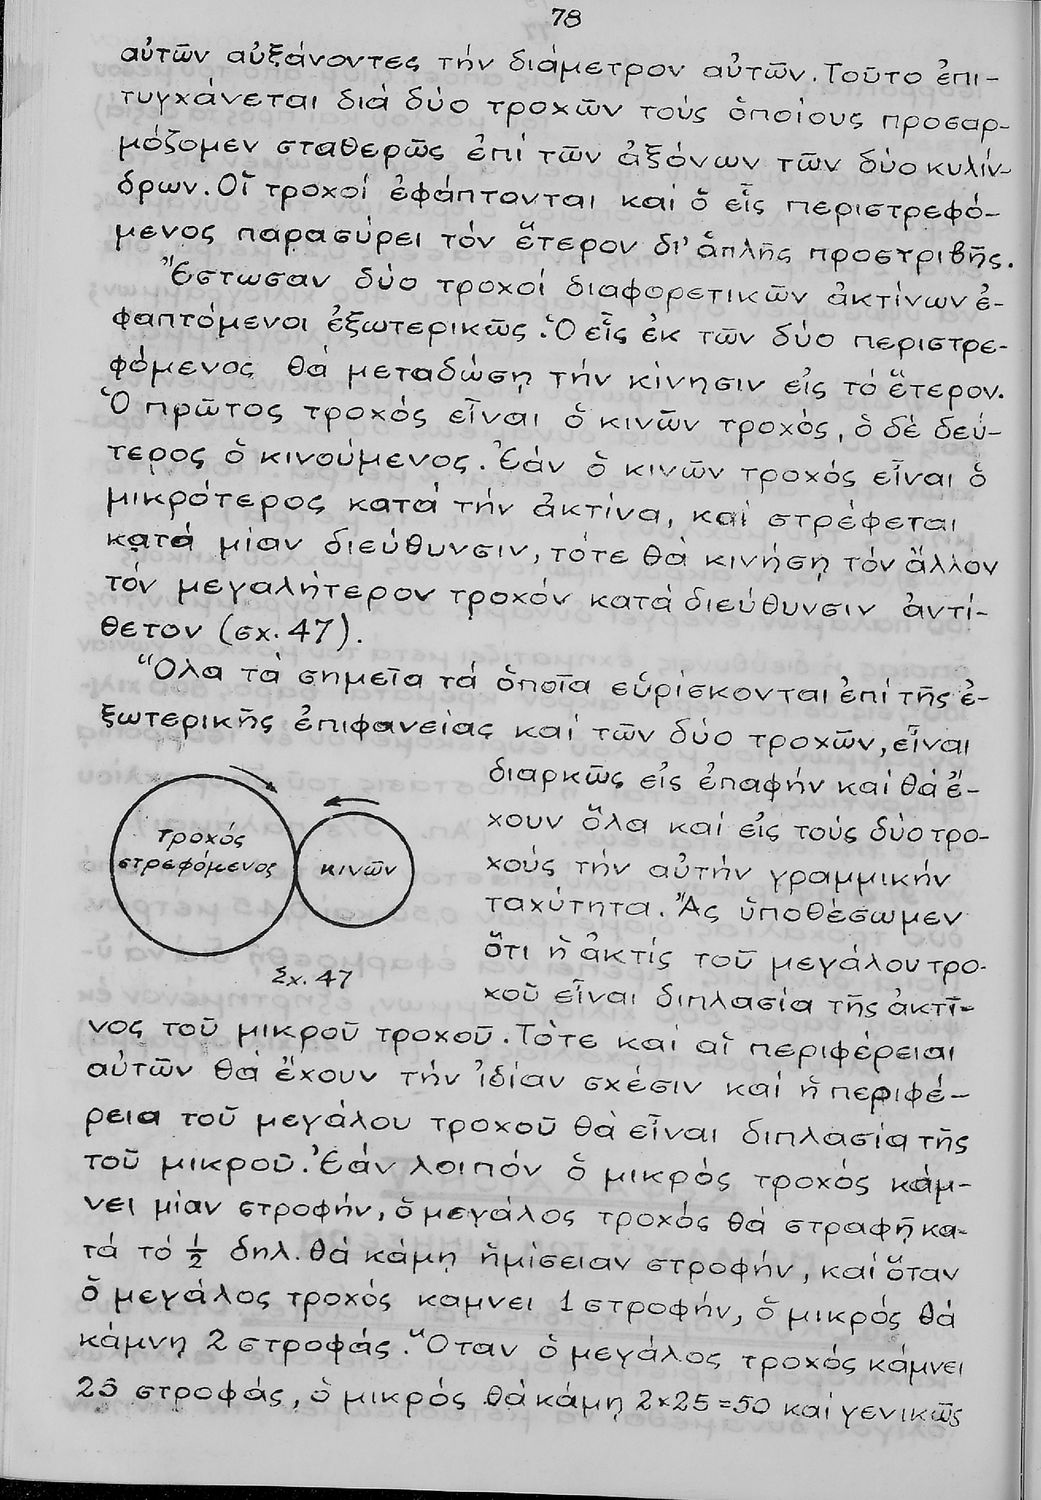 78
αὐτῶν αὐξάνοντες τήν διάμετρον αὐτῶν. Τοῦτο ἐπι-
τυγχάνεται διά δύο τροχῶν τούς ὁποίους προσαρ-
μόζομεν σταθερῶς ἐπί τῶν ἀξόνων τῶν δύο κυλίν-
δρων. Οἵ τροχοί ἐφάπτονται καί ὅ εἷς περιστρεφό-
μενος παρασύρει τόν ἕτερον δι' ἁπλῆς προστριβῆς.
Ἔστωσαν δύο τροχοί διαφορετικῶν ἀκτίνων ἐ-
φαπτόμενοι ἐξωτερικῶς. Ὁ εἷς ἐκ τῶν δύο περιστρε-
φόμενος θά μεταδώσῃ τήν κίνησιν εἰς τό ἕτερον.
Ὁ πρῶτος τροχός εἶναι ὁ κινῶν τροχός, ὁ δέ δεύ-
τερος ὁ κινούμενος. Ἐάν ὁ κινῶν τροχός εἶναι ὁ
μικρότερος κατά τήν ἀκτίνα, καί στρέφεται
κατά μίαν διεύθυνσιν, τότε θά κινήσῃ τόν ἄλλον
τόν μεγαλήτερον τροχόν κατά διεύθυνσιν ἀντί-
θετον (σχ. 47).
Ὅλα τά σημεῖα τά ὁποῖα εὑρίσκονται ἐπί τῆς ἐ-
ξωτερικῆς ἐπιφανείας καί τῶν δύο τροχῶν, εἶναι
διαρκῶς εἰς ἐπαφήν καί θά ἔ-
χουν ὅλα καί εἰς τούς δύο τρο-
χούς τήν αὐτήν γραμμικήν
ταχύτητα. Ἄς ὑποθέσωμεν
ὅτι ἡ ἀκτίς τοῦ μεγάλου τρο-
χοῦ εἶναι διπλασία τῆς ἀκτῖ-
τροχός
στρεφόμενος
κινῶν
Σχ. 47
νος τοῦ μικροῦ τροχοῦ. Τότε καί αἵ περιφέρειαι
αὐτῶν θά ἔχουν τήν ἰδίαν σχέσιν καί ἡ περιφέ-
ρεια τοῦ μεγάλου τροχοῦ θά εἶναι διπλασία τῆς
τοῦ μικροῦ. Ἐάν λοιπόν ὁ μικρός τροχός κάμ-
νει μίαν στροφήν, ὁ μεγάλος τροχός θά στραφῇ κα-
τά τό 1/2 δηλ. θά κάμῃ ἡμίσειαν στροφήν, καί ὅταν
ὁ μεγάλος τροχός καμνει 1 στροφήν, ὁ μικρός θά
κάμνῃ 2 στροφάς. Ὅταν ὁ μεγάλος τροχός κάμνει
25 στροφάς, ὁ μικρός θά κάμῃ 2×25=50 καί γενικῶς